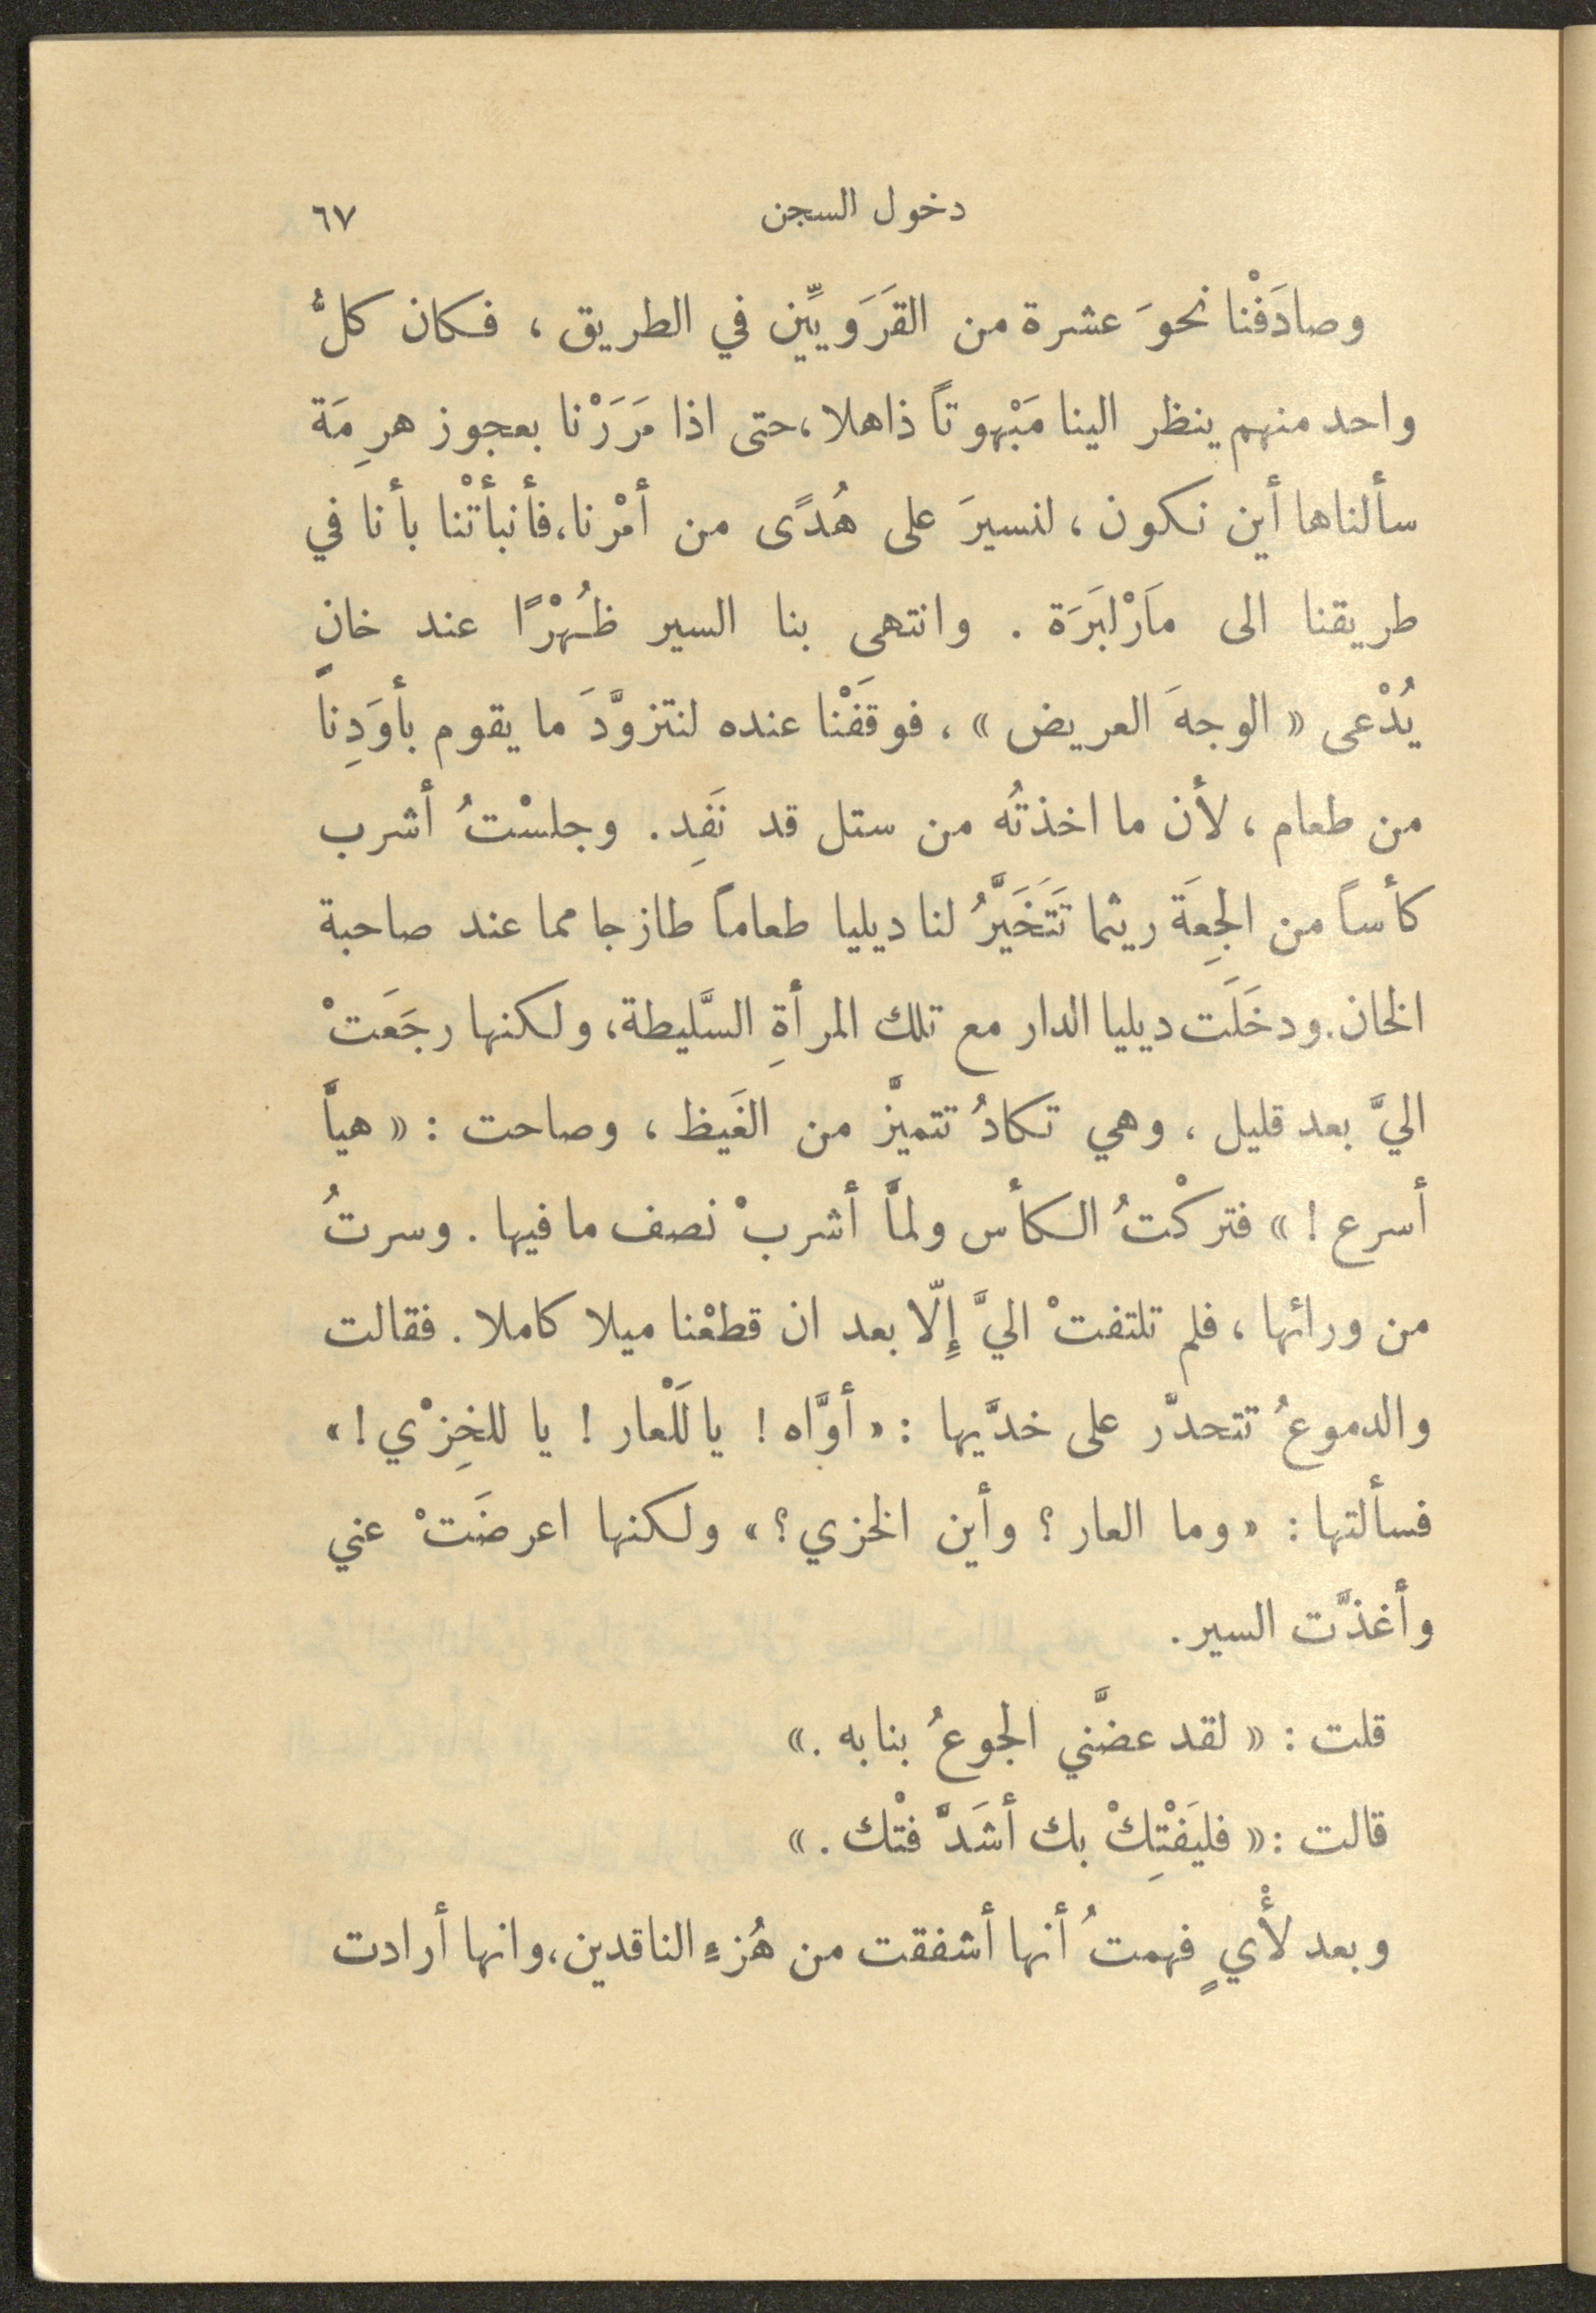 دخول السجن ٦٧
وصادَفْنا نحوَ عشرة من القَرَويِّين في الطريق ، فكان كلُّ
واحد منهم ينظر الينا مَبْهوتاً ذاهلا، حتى اذا مَرَرْنا بعجوز هرِمَة
سألناها أين نكون ، لنسيرَ على هُدًى من أمْرنا، فأنبأتْنا بأنا في
طريقنا الى مَارْلبَرَة . وانتهى بنا السير ظُهْرًا عند خانٍ
يُدْعى « الوجهَ العريض » ، فوقَفْنا عنده لنتزوَّدَ ما يقوم بأوَدِناً
من طعام ، لأن ما اخذتُه من ستل قد نَفِد. وجلسْتُ أشرب
كأساً من الجِعَة ريثما تَتَخَيَّرُ لنا ديليا طعاماً طازجا مما عند صاحبة
الخان. ودخَلَت ديليا الدار مع تلك المرأةِ السَّليطة، ولكنها رجَعَتْ
اليَّ بعد قليل ، وهي تكادُ تتميَّز من الغَيظ ، وصاحت : « هيَّا
أسرع ! » فتركْتُ الكأس ولمَّا أشربْ نصف ما فيها . وسرتُ
من ورائها ، فلم تلتفتْ اليَّ إِلّا بعد ان قطعْنا ميلا كاملا . فقالت
والدموعُ تتحدّر على خدَّيها : « أوَّاه ! يا لَلْعار ! يا للخِزْي ! »
فسألتها : « وما العار ؟ وأين الخزي ؟ » ولكنها اعرضَتْ عني
وأغذَّت السير .
قلت : « لقد عضَّني الجوعُ بنابه . »
قالت : « فليَفْتِكْ بك أشَدَّ فتْك . »
وبعد لأْيٍ فهمتُ أنها أشفقت من هُزءِ الناقدين، وانها أرادت